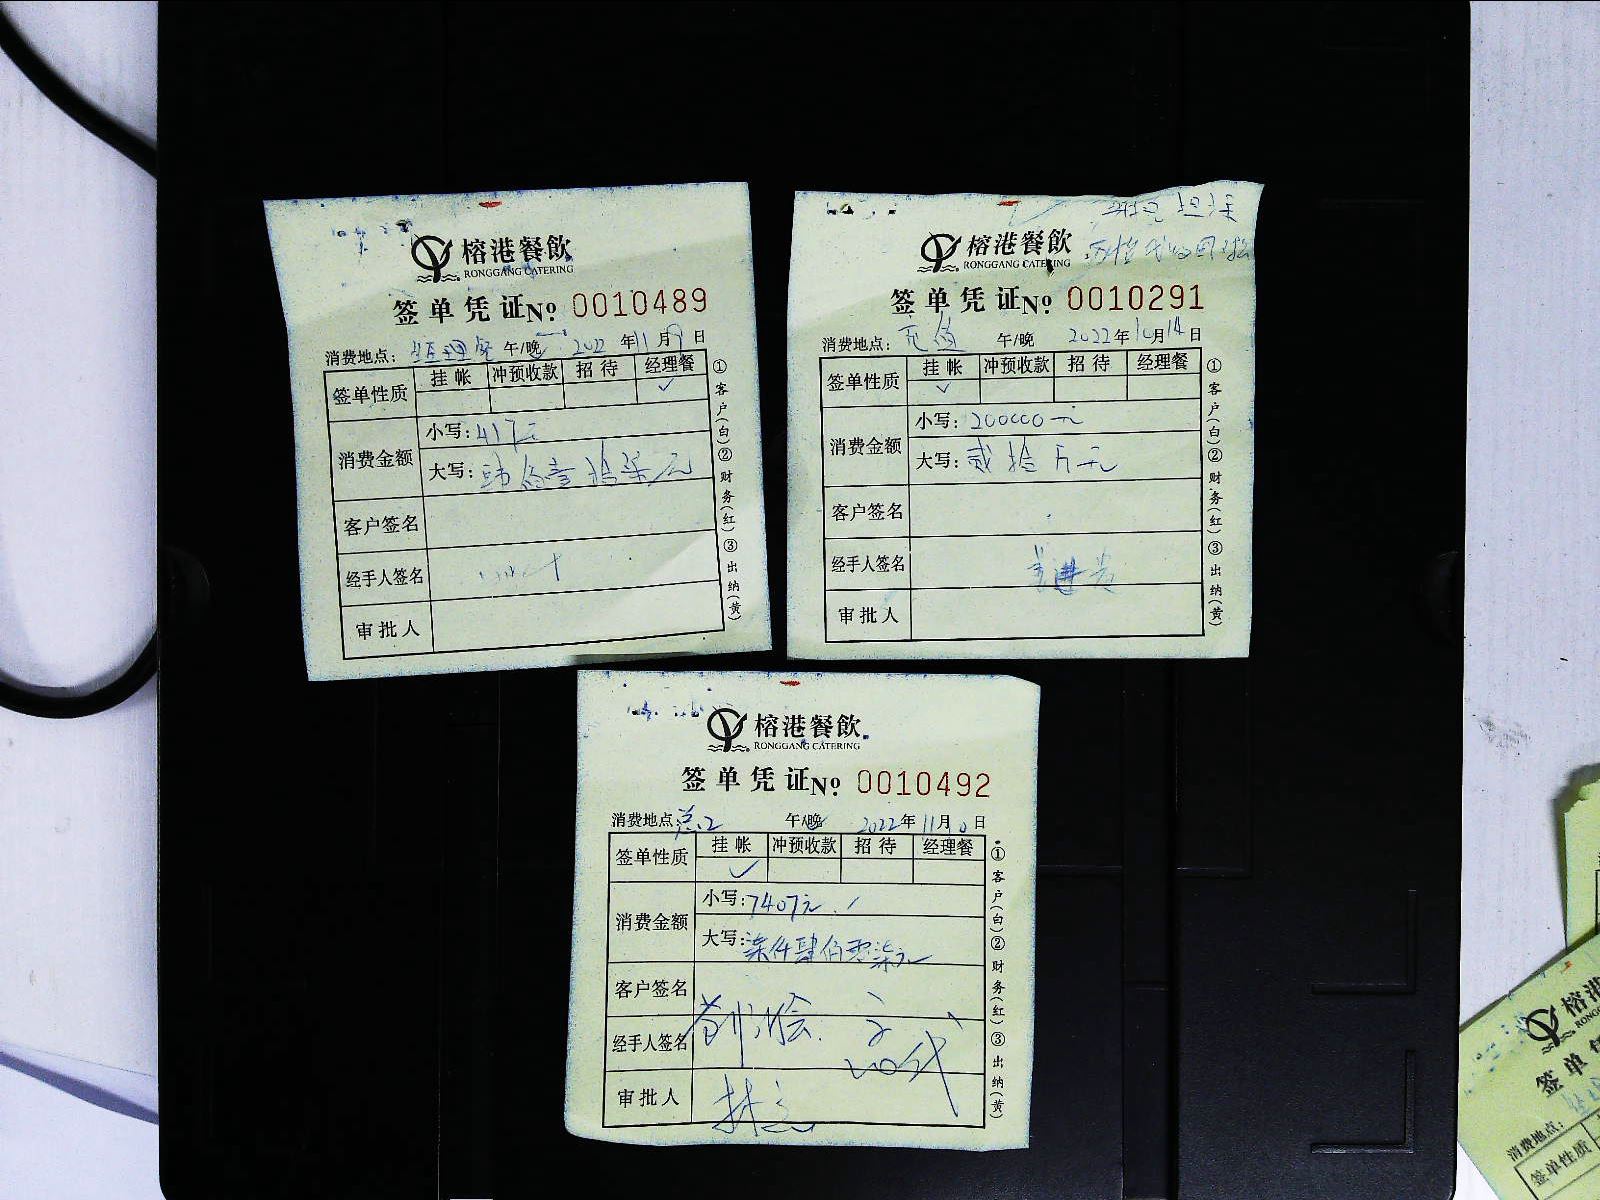 榕港餐飲
RONGGANG CATERING
签单凭证No. 0010489
消费地点: 经理餐 午/晚 2022年11月9日
签单性质 挂帐 冲预收款 招待 经理餐
✓
消费金额
小写: 417元
大写: 肆佰壹拾柒元
客户签名
经手人签名
审批人
①客户(白)②财务(红)③出纳(黄)
榕港餐飲
RONGGANG CATERING
签单凭证No. 0010291
消费地点: 充值 午/晚 2022年10月14日
签单性质 挂帐 冲预收款 招待 经理餐
✓
消费金额
小写: 200000元
大写: 贰拾万元
客户签名
经手人签名
审批人
①客户(白)②财务(红)③出纳(黄)
榕港餐飲
RONGGANG CATERING
签单凭证No. 0010492
消费地点: 总2 午/晚 2022年11月10日
签单性质 挂帐 冲预收款 招待 经理餐
✓
消费金额
小写: 7407元
大写: 柒仟肆佰零柒元
客户签名
经手人签名
审批人
①客户(白)②财务(红)③出纳(黄)
榕港
签单凭
消费地点:
签单性质